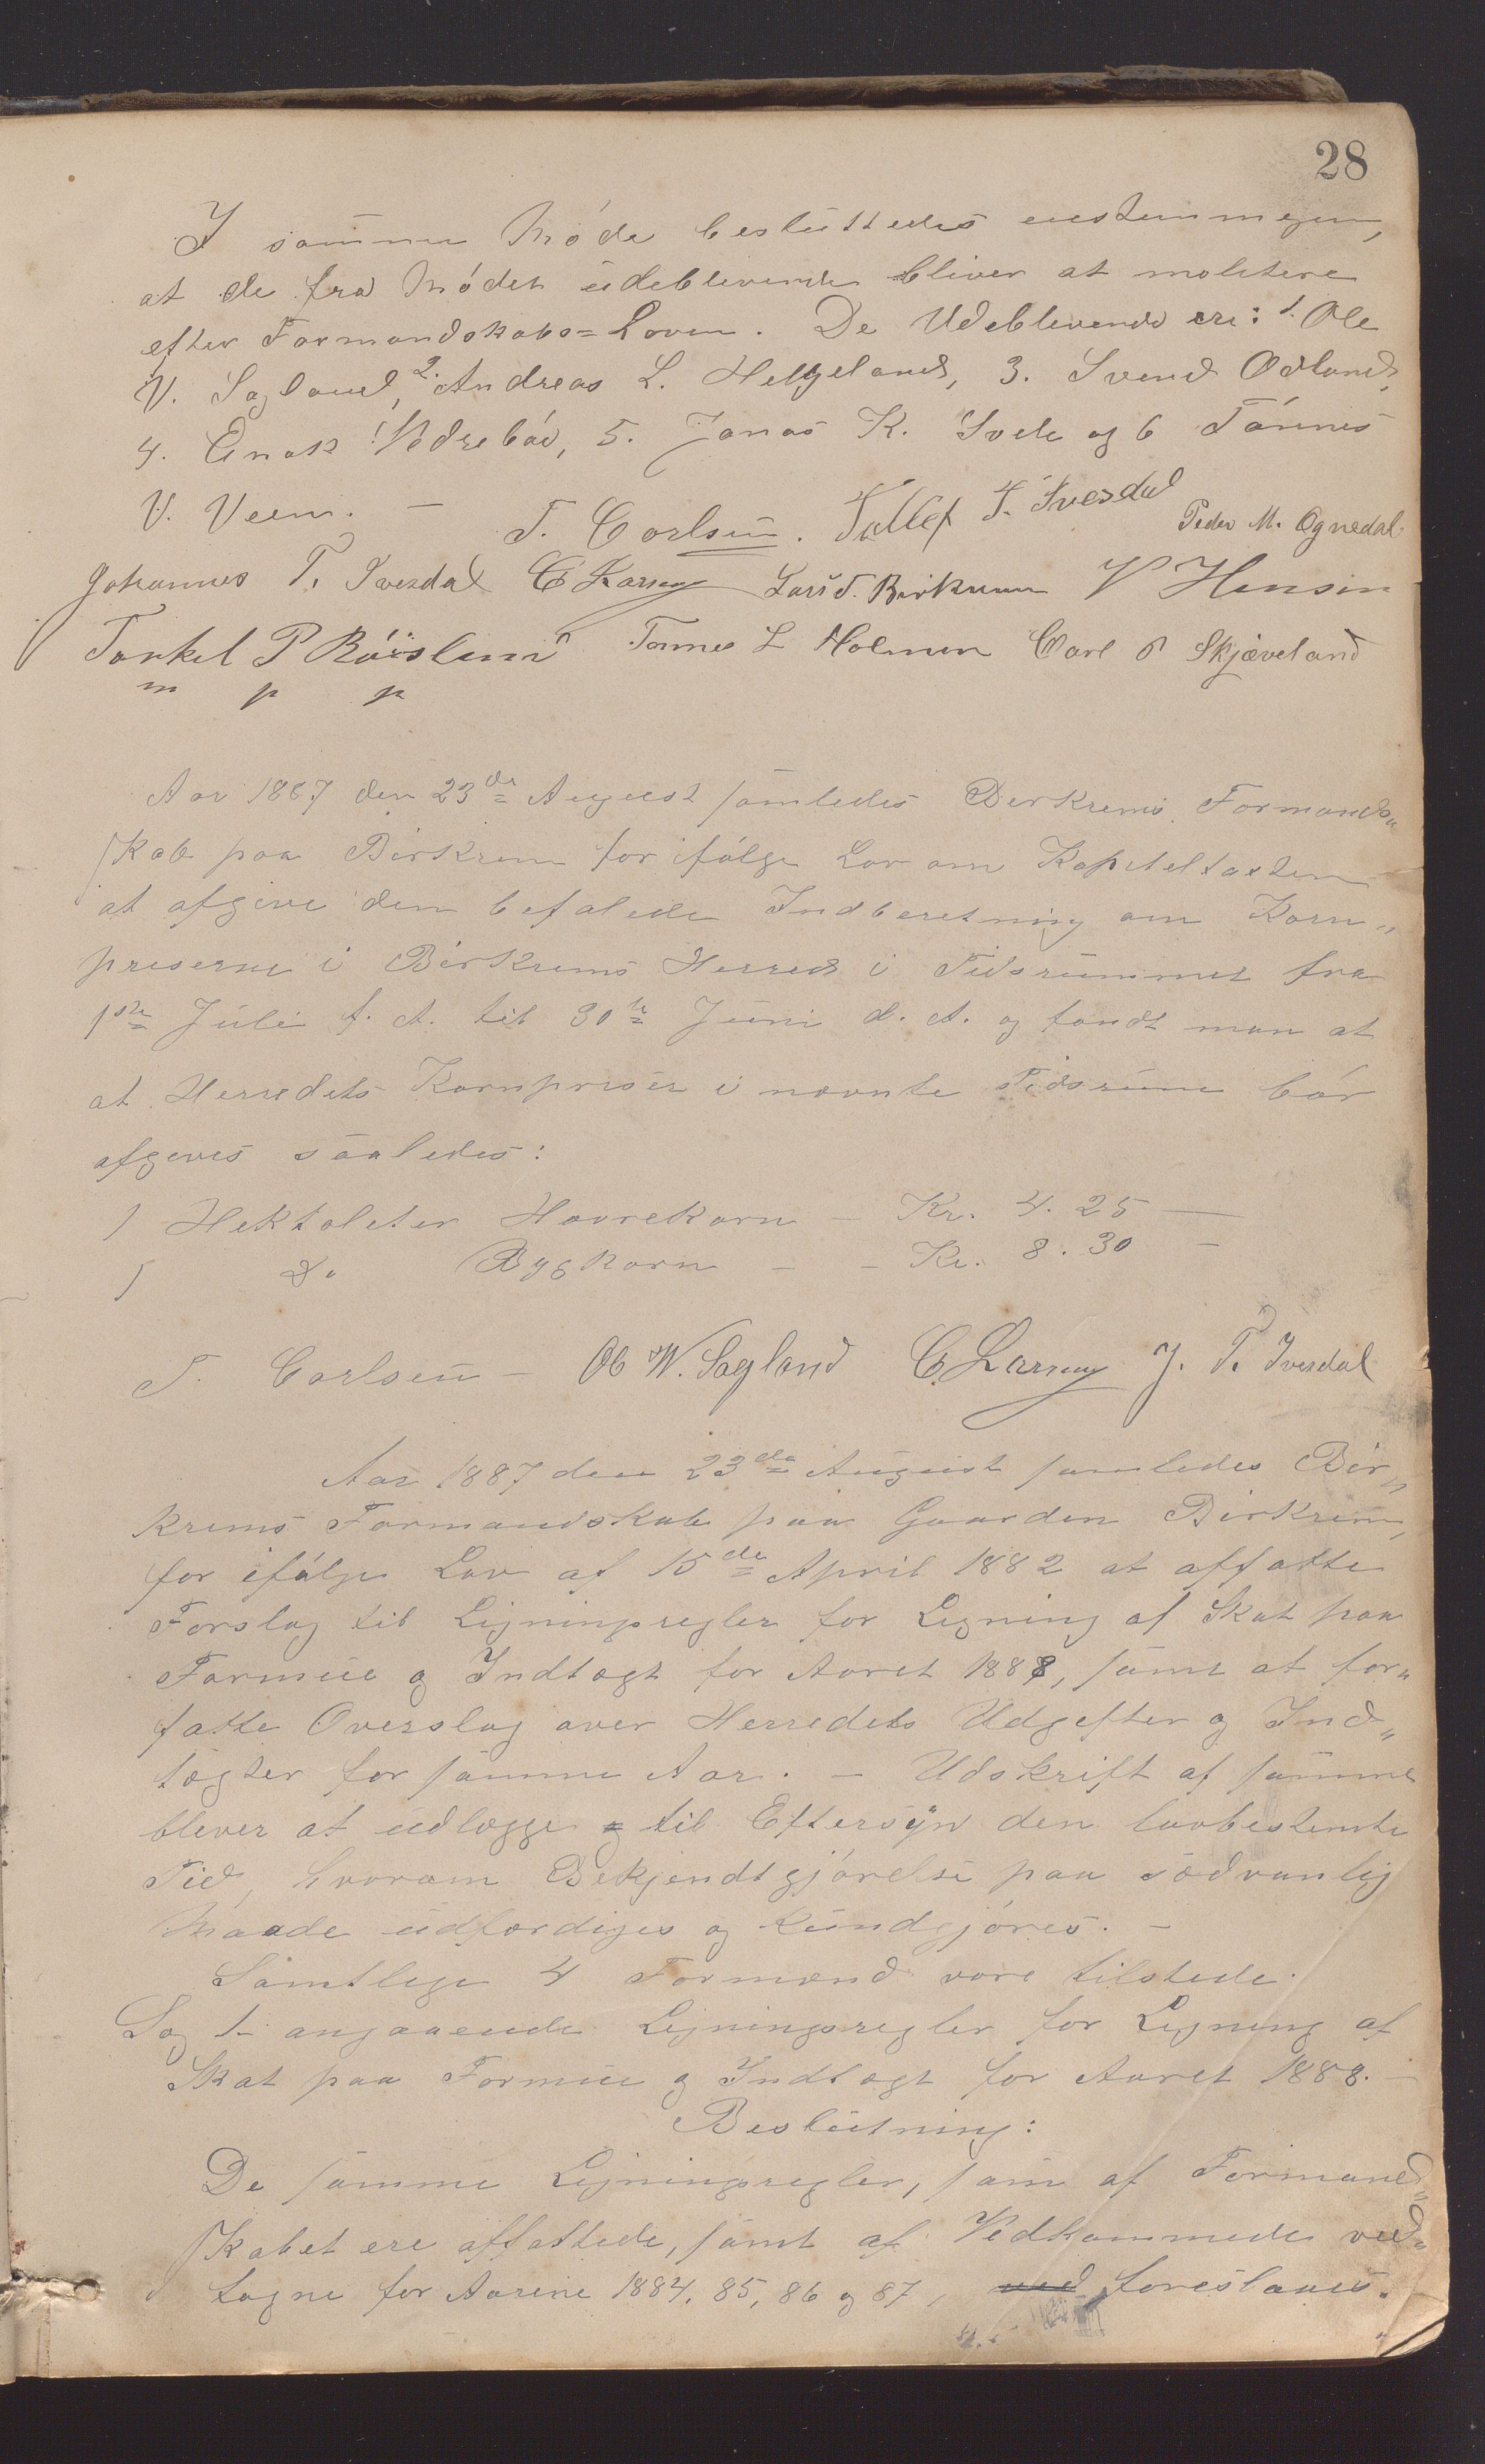 28
I samme Møde besluttedes eenstemmigen,
at de fra Mødet udeblevende bliver at molctere
efter Formandskabs=Loven. De Udeblevende ere: 1. Ole
V. Sagland, 2. Andreas L. Helgeland, 3. Svend Ødland,
4. Enok Vedrebøv, 5. Jonas K. Svele og 6 Tønnes
V. Veen. —
T. Carlsen. Tollef T. Ivesdal Peder M. Ognedal
Johannes T. Ivesdal C Larsen Lars d. Birkrem V Hansen
Torkel P Røisland Tønnes L Holmen Carl O Skjæveland
m p p
Aar 1887 den 23de August samledes Birkrems Formands„
skab paa Birkrem for ifølge Lov om Kapiteltaxten
at afgive den befalede Indberetning om Korn„
priserne i Birkrems Herred i Tidsrummet fra
1ste Juli f. A. til 30te Juni d. A. og fandt man at
at Herredets Kornpriser i nævnte Tidsrum bør
afgives saaledes:
1 Hektoliter Havrekorn — Kr. 4.25 —
1 do Bygkorn — — Kr. 8.30 —
T. Carlsen — Ol W. Sagland C Larsen J. T. Ivesdal
Aar 1887 den 23de August samledes Bir„
krems Formandskab paa Gaarden Birkrem,
for ifølge Lov af 15de April 1882 at affatte
Forslag til Ligningsregler for Ligning af Skat paa
Formue og Indtægt for Aaret 1888, samt at for„
fatte Overslag over Herredets Udgifter og Ind„
tægter for samme Aar. — Udskrift af samme
bliver at udlægge til Eftersyn den lovbestemte
Tid, hvorom Bekjendtgjørelse paa sædvanlig
Maade udfærdiges og kundgjøres. —
Samtlige 4 Formænd vare tilstede.
Sag 1. angaaende Ligningsregler for Ligning af
Skat paa Formue og Indtægt for Aaret 1888. —
Beslutning:
De samme Ligningsregler, som af Formand„
skabet ere affattede, samt af Vedkommede ved„
tagne for Aarene 1884, 85, 86 og 87, ved foreslaaes.